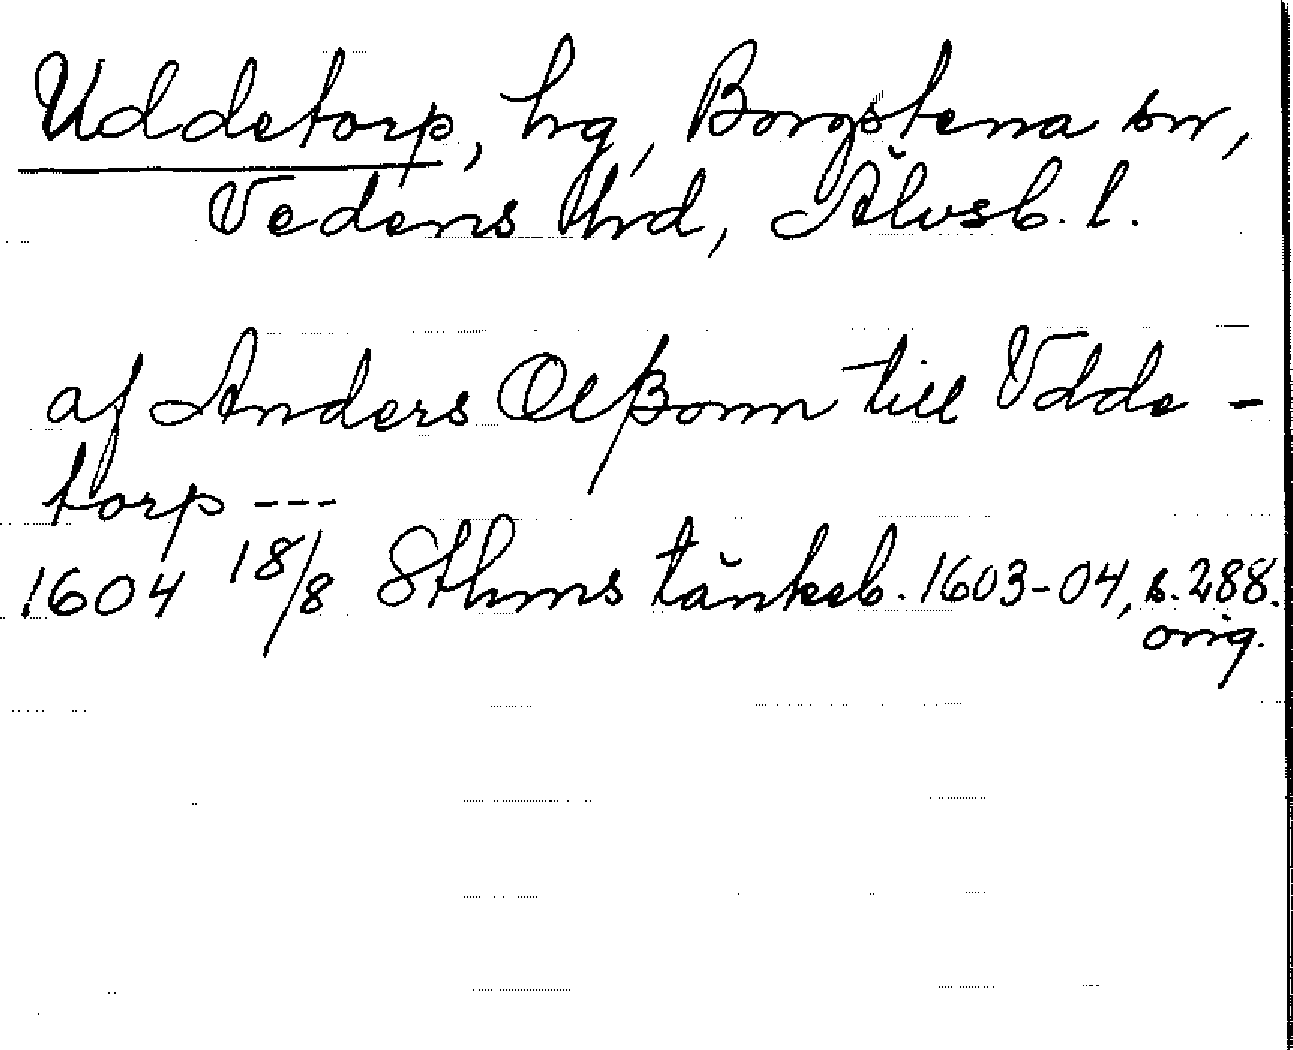 Uddetorp, hg, Borgstena sn,
Vedens hrd, Älvsb. l.
af Anders Olßonn till Vdde-
torp ---
1604 18/8 Sthms tänkeb. 1603-04, s. 288.
orig.